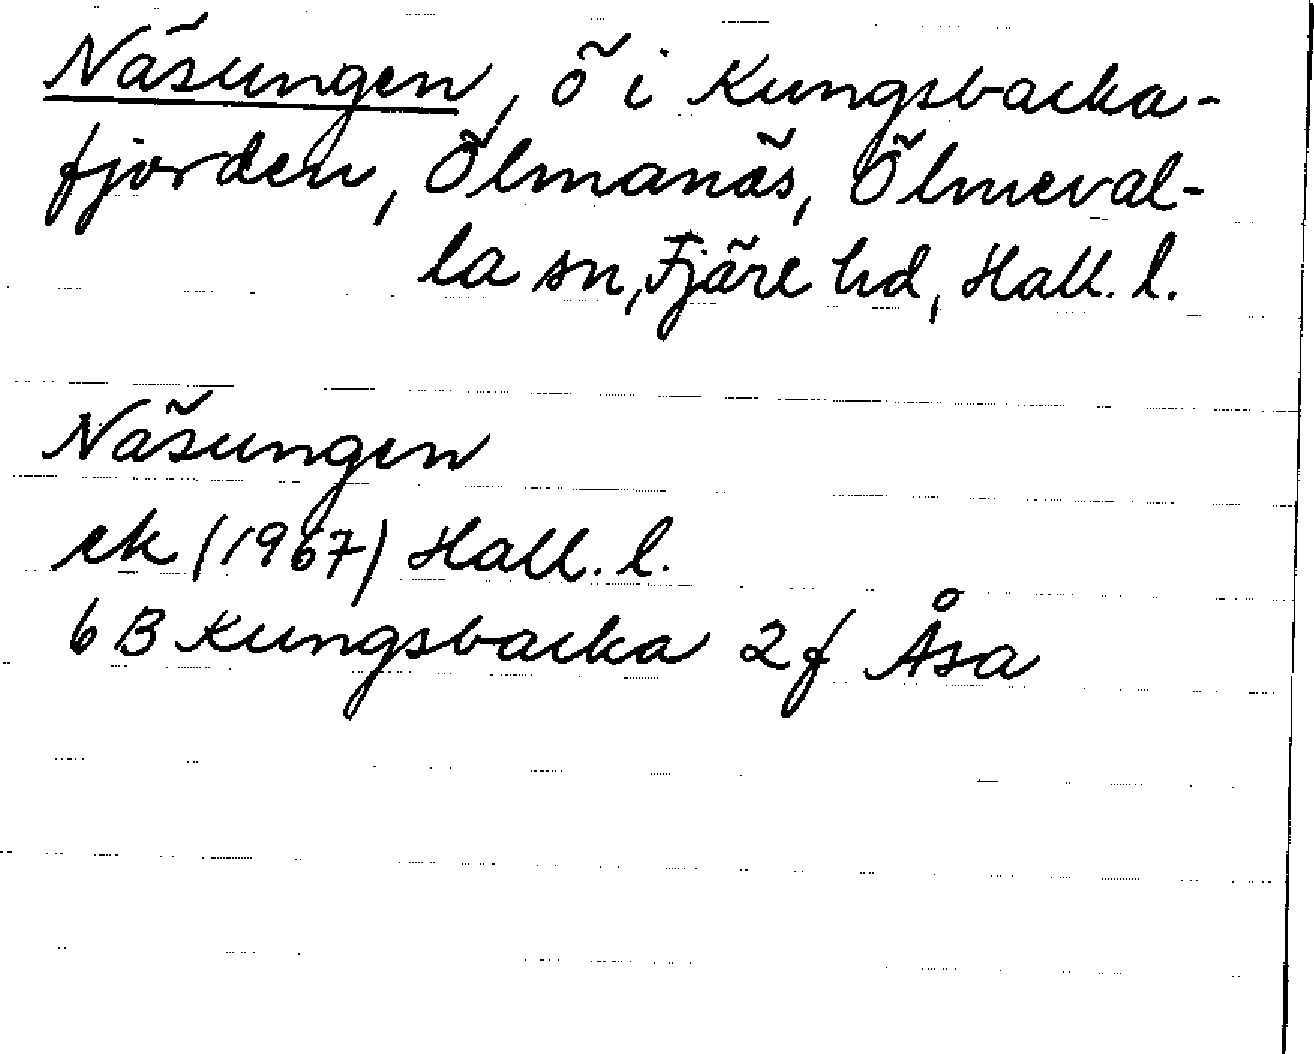 Näsungen, ö i Kungsbacka-
fjorden, Ölmanäs, Ölmeval-
la sn, Fjäre hd, Hall. l.
Näsungen
ek (1967) Hall. l.
6 B Kungsbacka 2 f Åsa